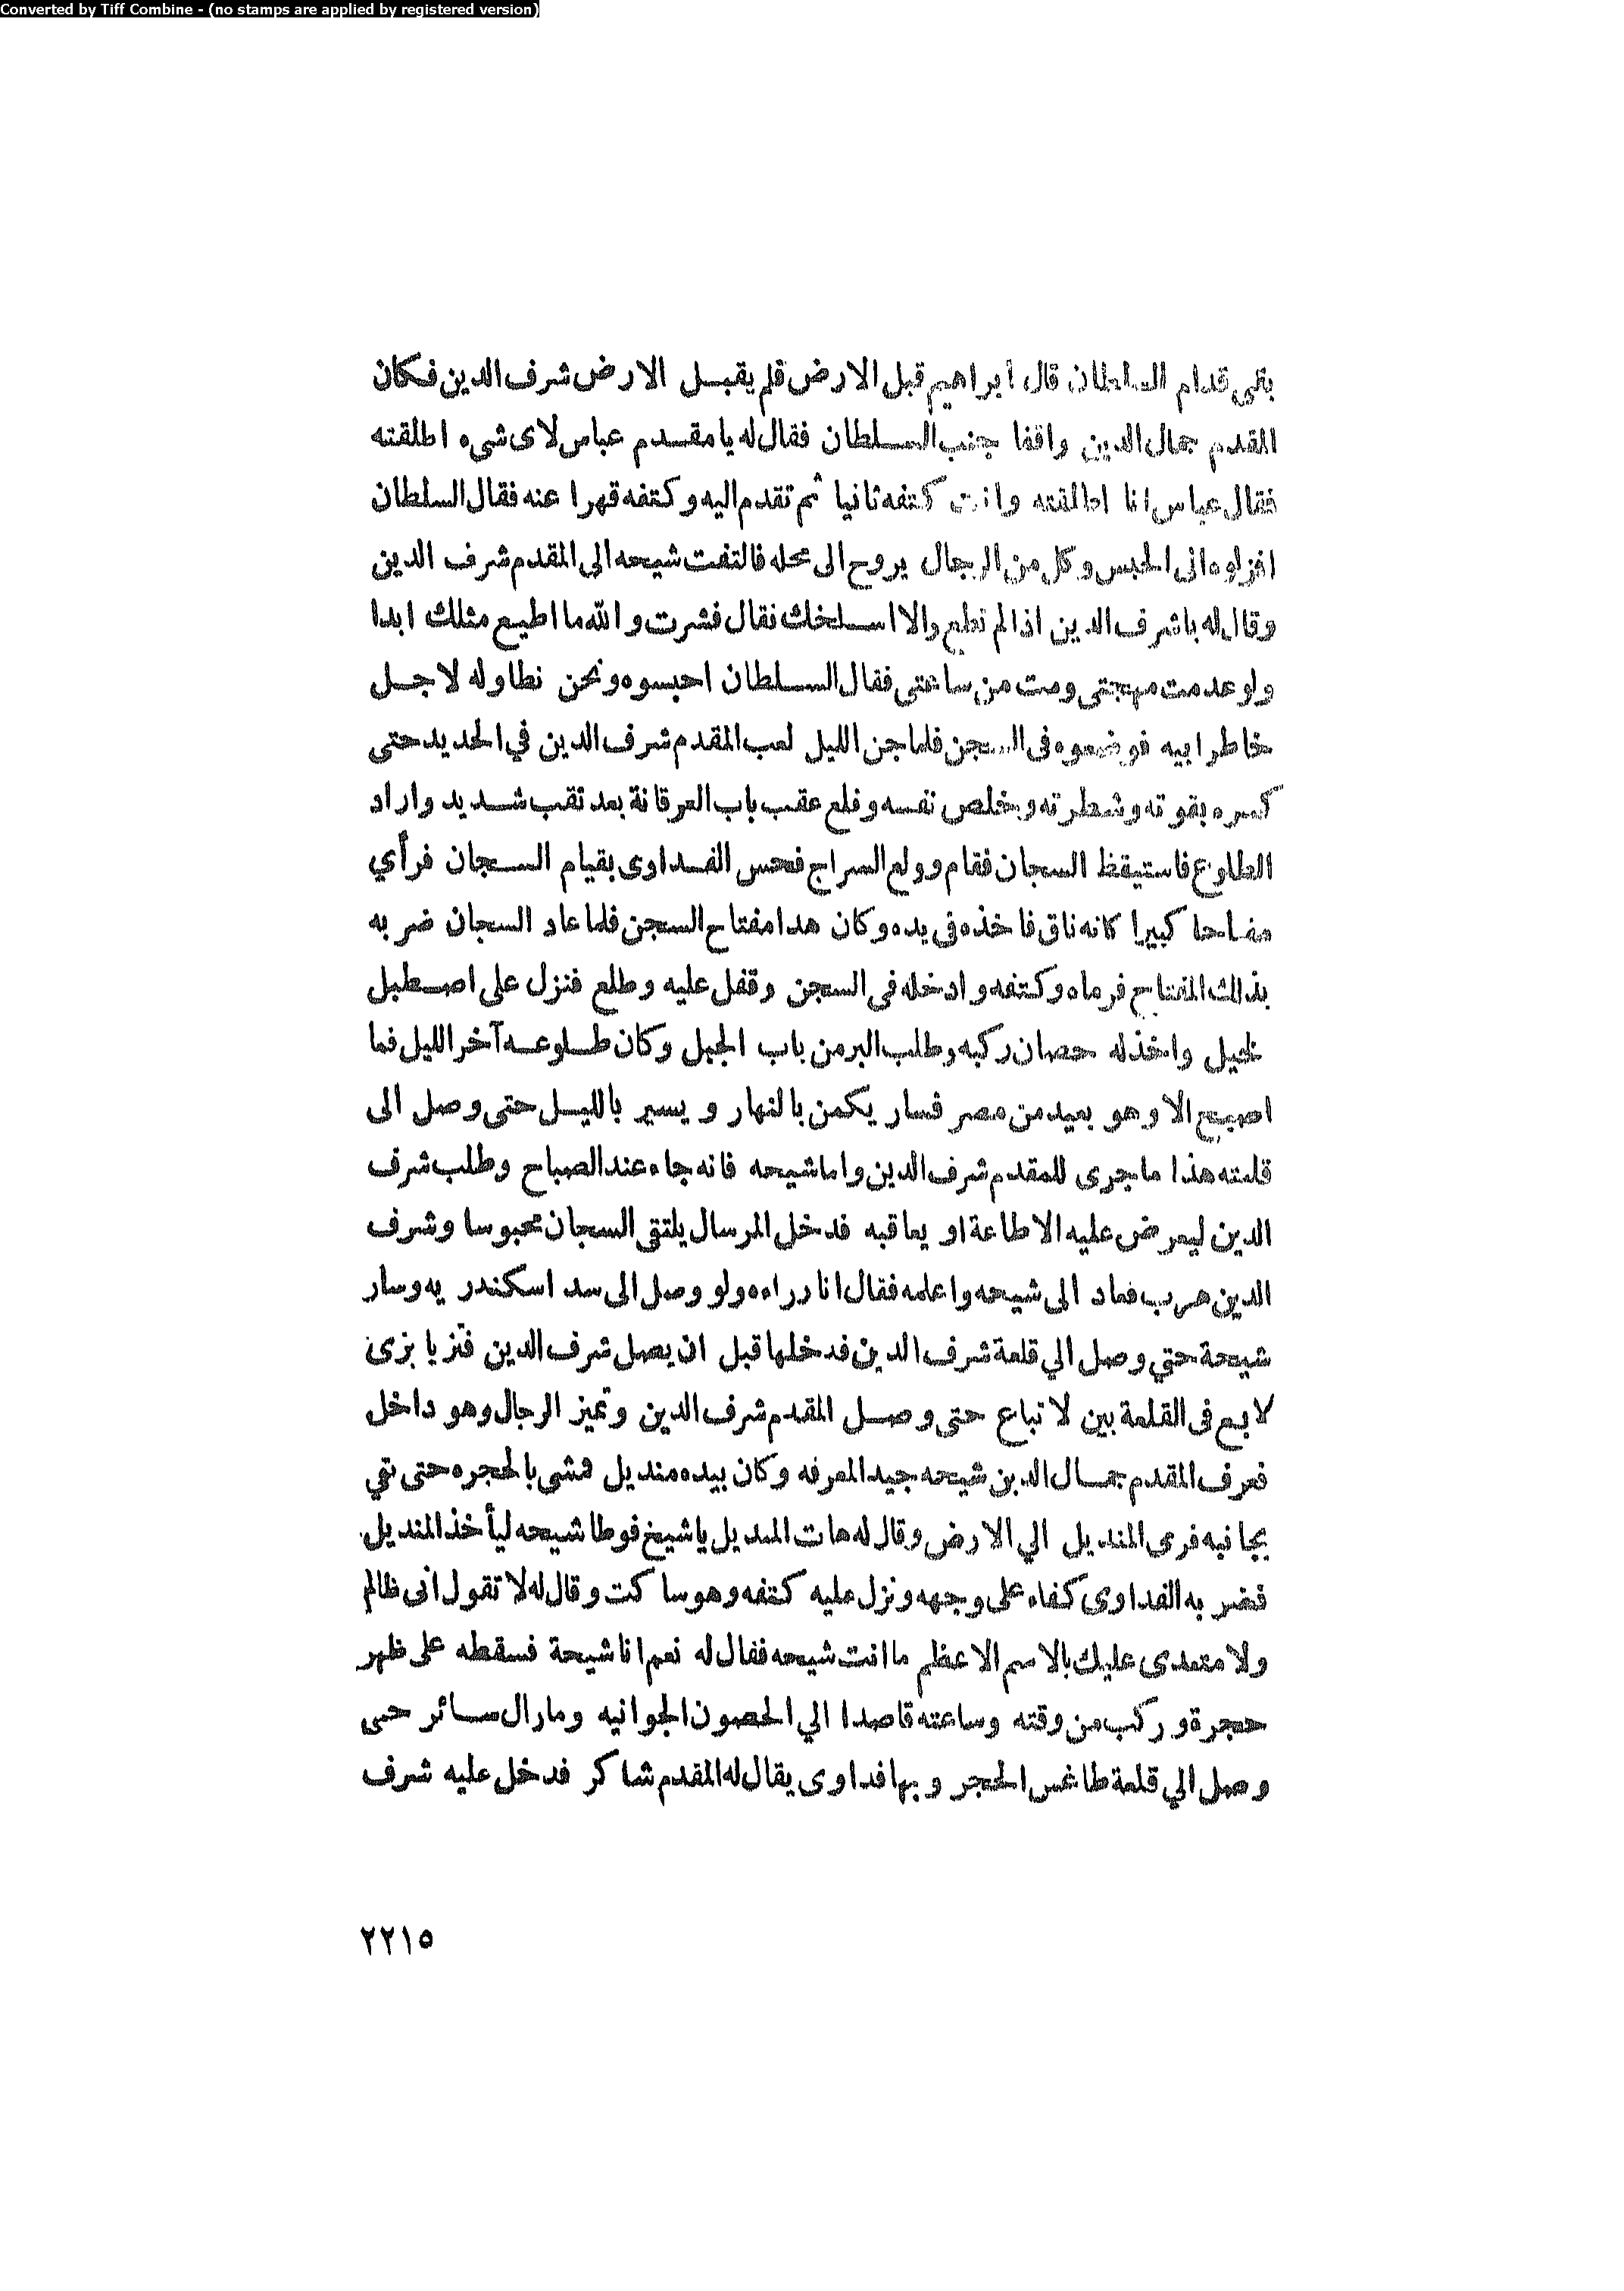 Converted by Tiff Combine - (no stamps are applied by registered version)
بقى قدام السلطان قال ابراهيم قبل الارض فلم يقبل الارض شرف الدين فكان
المقدم جمال الدين واقفا جنب السلطان فقال له يا مقدم عباس لاى شىء اطلقته
فقال عباس انا اطلقته وانت كتفه ثانيا ثم تقدم اليه وكتفه قهرا عنه فقال السلطان
انزلوه الى الحبس وكل من الرجال يروح الى محله فالتفت شيحه الى المقدم شرف الدين
وقال له ياشرف الدين اذا لم تطع والا اسلخك فقال فشرت والله ما اطيع مثلك ابدا
ولو عدمت مهجتى ومت من ساعتى فقال السلطان احبسوه ونحن نطاوله لاجل
خاطر ابيه فوضعوه فى السجن فلما جن الليل لعب المقدم شرف الدين في الحديد حتى
كسره بقوته وشطرته وخلص نفسه وقلع عقب باب العرقانة بعد تقب شديد واراد
الطلوع فاستيقظ السجان فقام وولع السراج فحس الفداوى بقيام السجان فرأي
مفتاحا كبيرا كانه ناق فاخذه فى يده وكان هدا مفتاح السجن فلما عاد السجان ضربه
بذلك المفتاح فرماه وكتفه وادخله فى السجن وقفل عليه وطلع فنزل على اصطبل
الخيل واخذ له حصان ركبه وطلب البر من باب الجبل وكان طلوعه آخر الليل فما
اصبح الا وهو بعيد من مصر فسار يكمن بالنهار ويسير بالليل حتى وصل الى
قلعته هذا ما جرى للمقدم شرف الدين واما شيحه فانه جاء عند الصباح وطلب شرف
الدين ليعرض عليه الاطاعة او يعاقبه فدخل المرسال يلتقى السجان محبوسا وشرف
الدين هرب فعاد الى شيحه واعلمه فقال انا وراءه ولو وصل الى سد اسكندريه وسار
شيحة حتي وصل الي قلعة شرف الدين فدخلها قبل ان يصل شرف الدين فتزيا بزى
لابع فى القلعة بين لاتباع حتى وصل المقدم شرف الدين وتميز الرجال وهو داخل
فعرف المقدم جمال الدين شيحه جيد المعرفه وكان بيده منديل فمشى بالحجره حتى بقي
بجانبه فرمى المنديل الي الارض وقال له هات المنديل ياشيخ فوطا شيحه ليأخذ المنديل
فضربه الفداوى كفاه على وجهه ونزل عليه كتفه وهو ساكت وقال له لا تقول انى ظالم
ولا متعدى عليك بالاسم الاعظم ما انت شيحه فقال له نعم انا شيحة فسقطه على ظهر
حجرة وركب من وقته وساعته قاصدا الي الحصون الجوانيه ومازال سائر حتى
وصل الي قلعة طاغس الحجر وبها فداوى يقال له المقدم شاكر فدخل عليه شرف
٢٢١٥